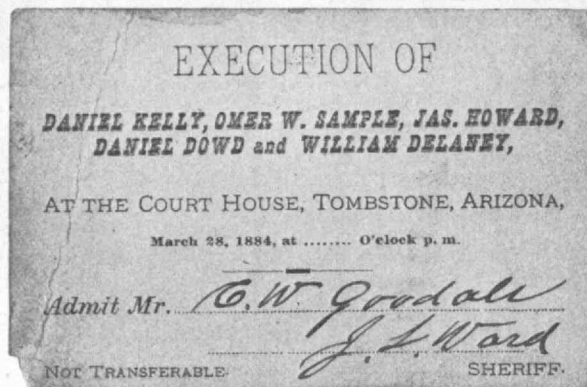 EXECUTION OF
DANIEL KELLY, OMER W. SAMPLE, JAS. HOWARD,
DANIEL DOWD and WILLIAM DELANEY,
AT THE COURT HOUSE, TOMBSTONE, ARIZONA,
March 28, 1884, at ........ O'clock p. m.
Admit Mr. C. W. Goodale
J. L. Ward
NOT TRANSFERABLE. SHERIFF.